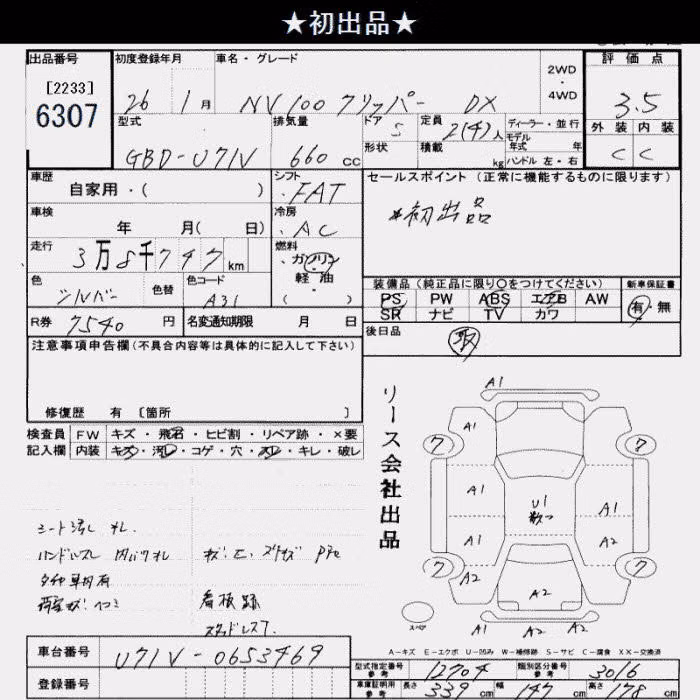 ★初出品★
出品番号 初度登録年月 車名・グレード 2WD・4WD 評価点
[2233]
6307
26 1月 NV100クリッパー DX 3.5
型式 排気量 ドア 定員 ディーラー・並行 外装 内装
GBD-U71V 660cc 5 2(4)人 モデル年式 年 C C
形状 積載 kg ハンドル 左・右
車歴 シフト セールスポイント (正常に機能するものに限ります)
自家用・( ) FAT
*初出品
車検 冷房
年 月( 日) AC
走行 燃料
3万8千747km ・ガソリン
軽油
( )
色 色替 色コード 装備品 (純正品に限り○をつけてください) 新車保証書
シルバー A31 PS PW ABS エアB AW 有・無
SR ナビ TV カワ
R券 7540円 名変通知期限 月 日 後日品 取
注意事項申告欄 (不具合内容等は具体的に記入して下さい)
修復歴 有 [箇所 ]
検査員 FW キズ・飛石・ヒビ割・リペア跡・×要
記入欄 内装 キズ・汚レ・コゲ・穴・スレ・キレ・破レ
リース会社出品
A1
A1
7 7
A1 U1 数っ A1
A1 A1
7 7
A2 A2 A2
スペア
A2 A2 A2
シート汚レ スレ
ハンドルスレ 内ハリスレ キズ・E、スリキズ
看板跡
スタッドレス7
A-キズ E-エクボ U-凹み W-補修跡 S-サビ C-腐食 XX-交換済
車台番号 U71V-0653469 型式指定番号 参考 12704 類別区分番号 参考 3016
登録番号 車庫証明用 参考 長さ 339cm 幅 147cm 高さ 178cm